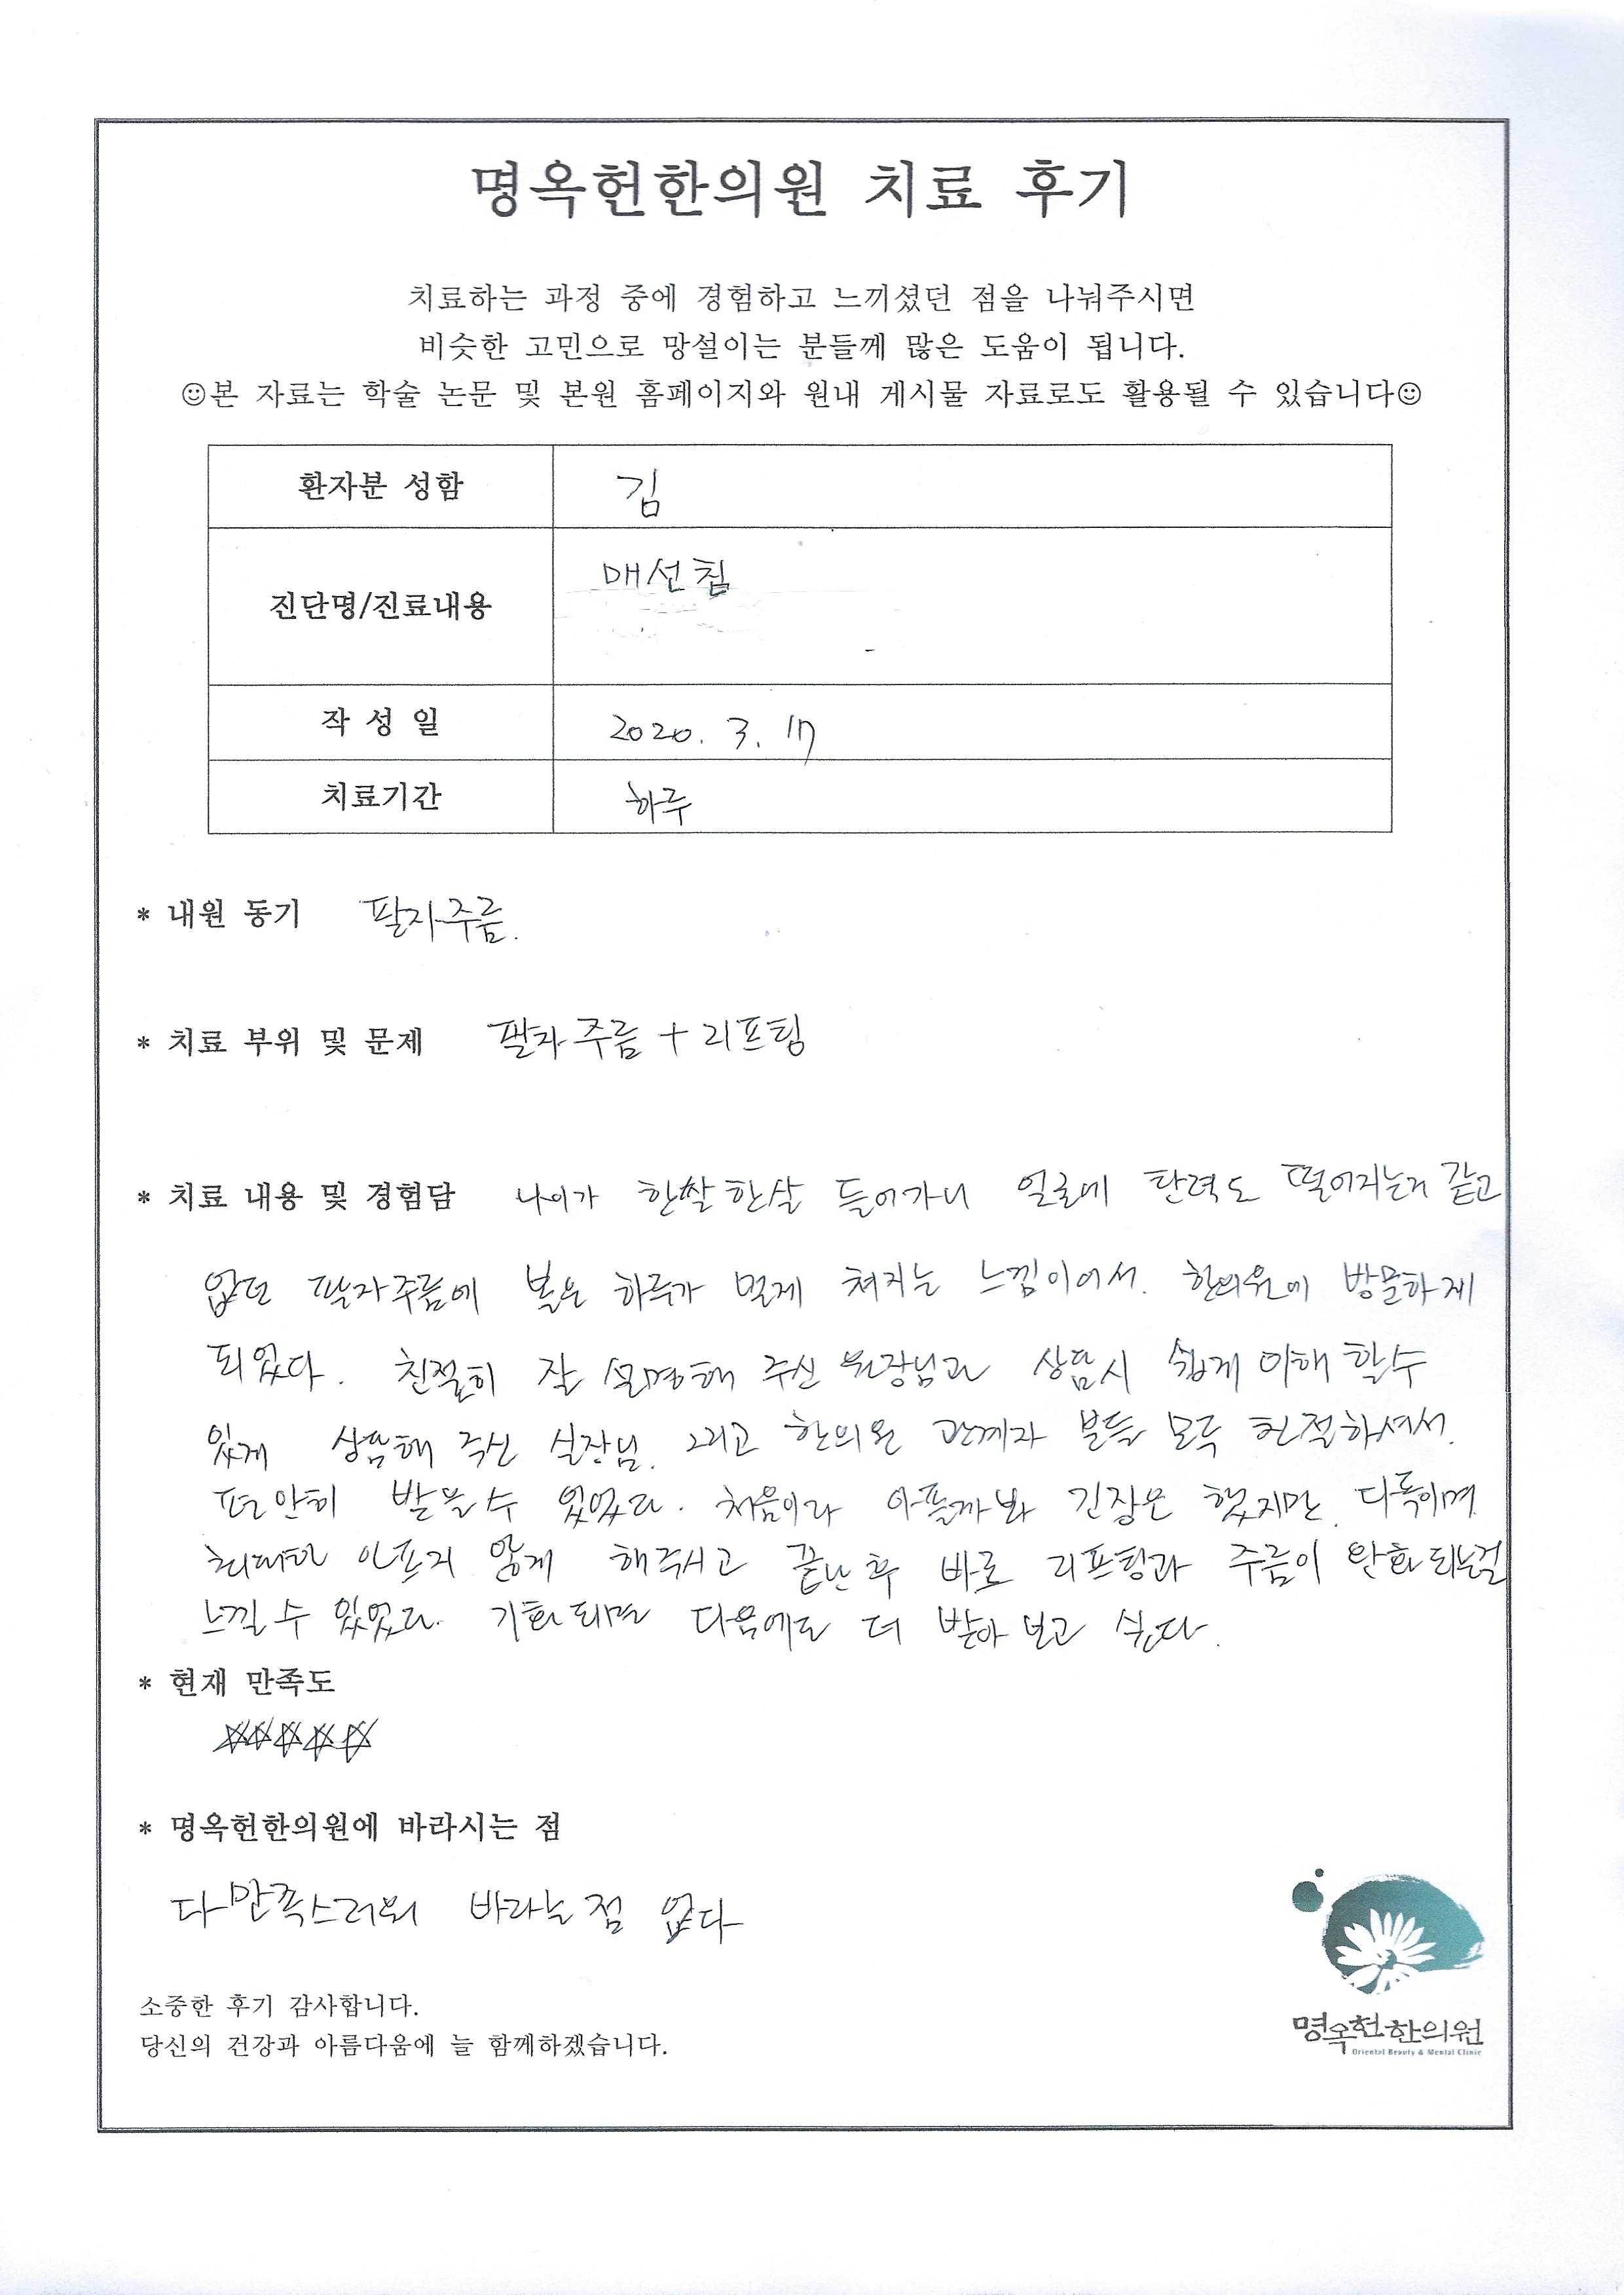 명옥헌한의원 치료 후기
치료하는 과정 중에 경험하고 느끼셨던 점을 나눠주시면
비슷한 고민으로 망설이는 분들께 많은 도움이 됩니다.
☺본 자료는 학술 논문 및 본원 홈페이지와 원내 게시물 자료로도 활용될 수 있습니다☺
환자분 성함 김
진단명/진료내용 매선침
작 성 일 2020. 3. 17
치료기간 하루
* 내원 동기 팔자주름.
* 치료 부위 및 문제 팔자주름 + 리프팅
* 치료 내용 및 경험담 나이가 한살한살 들어가니 얼굴에 탄력도 떨어지는거 같고
없던 팔자주름에 볼은 하루가 멀게 쳐지는 느낌이어서. 한의원에 방문하게
되었다. 친절히 잘 설명해 주신 원장님과 상담시 쉽게 이해 할수
있게 상담해 주신 실장님. 그리고 한의원 관계자 분들 모두 친절하셔서.
편안히 받을수 있었다. 처음이라 아플까봐 긴장은 했지만 다독이며
최대한 아프지 않게 해주시고 끝난후 바로 리프팅과 주름이 완화되는걸
느낄 수 있었다. 기회되면 다음에도 더 받아 보고 싶다.
* 현재 만족도
☆☆☆☆☆
* 명옥헌한의원에 바라시는 점
다만족스러워 바라는점 없다
소중한 후기 감사합니다.
당신의 건강과 아름다움에 늘 함께하겠습니다.
명옥헌한의원
Oriental Beauty & Mental Clinic